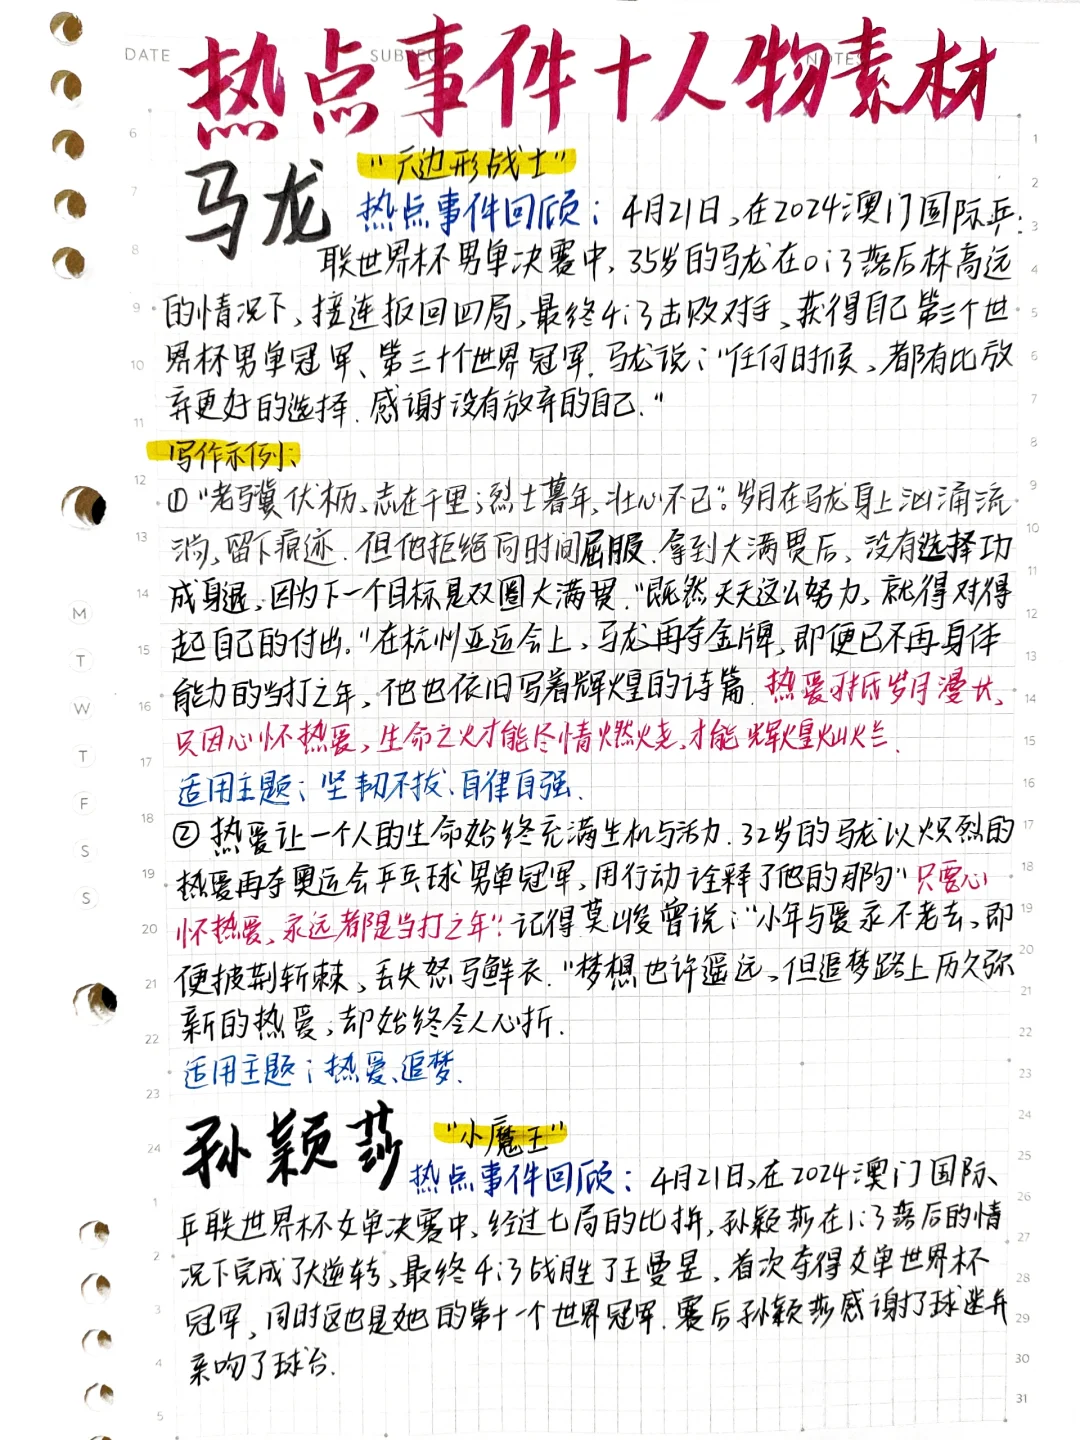 DATE SUBJECT NOTES
热点事件十人物素材
马龙 "六边形战士"
热点事件回顾：4月21日，在2024澳门国际乒
联世界杯男单决赛中，35岁的马龙在0:3落后林高远
的情况下，接连扳回四局，最终4:3击败对手，获得自己第三个世
界杯男单冠军、第三十个世界冠军．马龙说："任何时候，都有比放
弃更好的选择．感谢没有放弃的自己．"
写作示例：
①"老骥伏枥，志在千里；烈士暮年，壮心不已"。岁月在马龙身上汹涌流
淌，留下痕迹．但他拒绝向时间屈服．拿到大满贯后，没有选择功
成身退，因为下一个目标是双圈大满贯．"既然天天这么努力，就得对得
起自己的付出．"在杭州亚运会上，马龙再夺金牌，即便已不再身体
能力的当打之年，他也依旧写着辉煌的诗篇．热爱可抵岁月漫长，
只因心怀热爱，生命之火才能尽情燃烧，才能辉煌灿烂．
适用主题：坚韧不拔、自律自强．
②热爱让一个人的生命始终充满生机与活力．32岁的马龙以炽烈的
热爱再夺奥运会乒乓球男单冠军，用行动诠释了他的那句"只要心
怀热爱，永远都是当打之年"．记得莫峻曾说："少年与爱永不老去，即
便披荆斩棘，丢失怒马鲜衣．"梦想也许遥远，但追梦路上历久弥
新的热爱，却始终令人心折．
适用主题：热爱、追梦．
孙颖莎 "小魔王"
热点事件回顾：4月21日，在2024澳门国际
乒联世界杯女单决赛中，经过七局的比拼，孙颖莎在1:3落后的情
况下完成了大逆转，最终4:3战胜了王曼昱，首次夺得女单世界杯
冠军，同时这也是她的第十一个世界冠军．赛后孙颖莎感谢了球迷并
亲吻了球台．